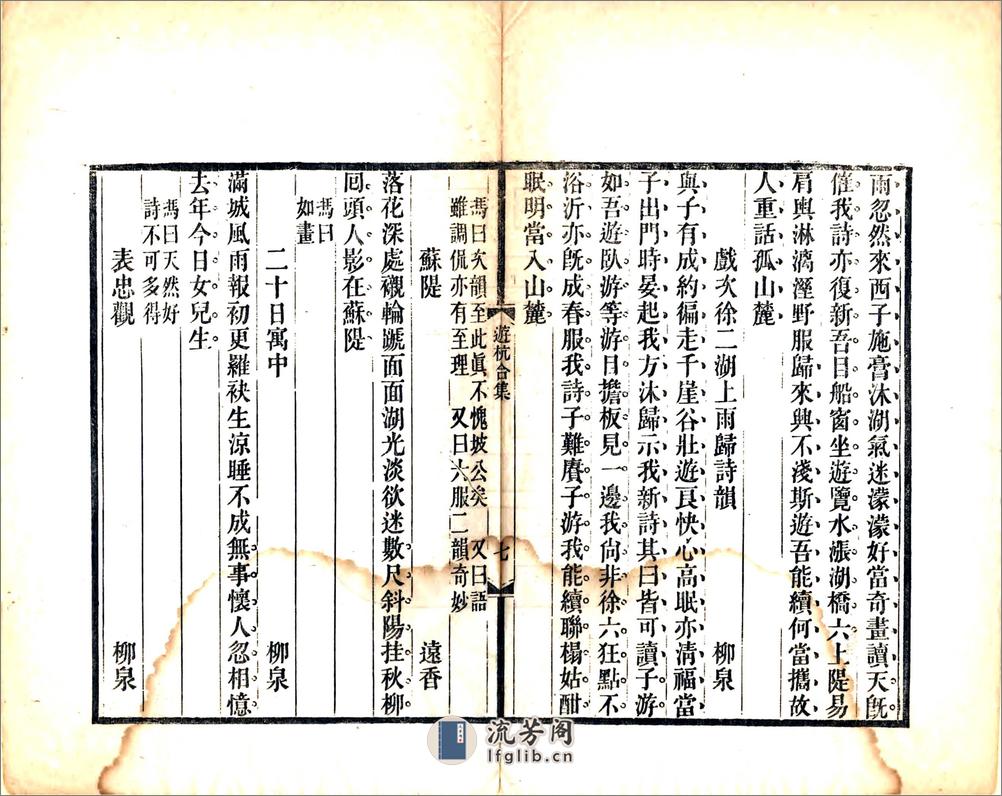 雨忽然來西子施膏沐湖氣迷濛濛好當奇畫讀天旣
催我詩亦復新吾目船窗坐遊覽水漲湖橋六上隄易
肩輿淋漓溼野服歸來興不淺斯遊吾能續何當攜故
人重話孤山麓
戲次徐二湖上雨歸詩韻 柳泉
與子有成約徧走千崖谷壯遊良快心高眠亦清福當
子出門時晏起我方沐歸示我新詩其曰皆可讀子游
如吾遊臥游等游目擔板見一邊我尙非徐六狂點不
浴沂亦旣成春服我詩子難賡子游我能續聯榻姑酣
眠明當入山麓
馮曰次韻至此眞不愧坡公矣 又曰語
雖調侃亦有至理 又曰六服二韻奇妙
蘇隄 遠香
落花深處襯輪蹏面面湖光淡欲迷數尺斜陽挂秋柳
回頭人影在蘇隄
馮曰
如畫
二十日寓中 柳泉
滿城風雨報初更羅袂生涼睡不成無事懷人忽相憶
去年今日女兒生
馮曰天然好
詩不可多得
表忠觀 柳泉
遊杭合集
七
流芳阁
lfglib.cn